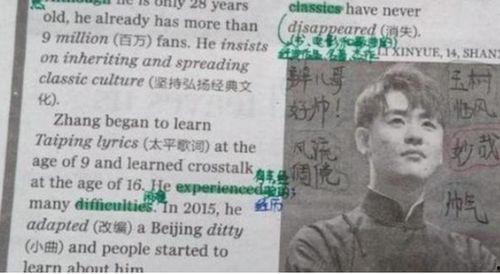 Although he is only 28 years
old, he already has more than
9 million (百万) fans. He insists
on inheriting and spreading
classic culture (坚持弘扬经典文
化).
Zhang began to learn
Taiping lyrics (太平歌词) at the
age of 9 and learned crosstalk
at the age of 16. He experienced
many difficulties. In 2015, he
adapted (改编) a Beijing ditty
(小曲) and people started to
learn about him
困难
经历
classics have never
disappeared (消失).
LI XINYUE, 14, SHANX
辫儿哥
好帅!
风流
倜傥
玉树
临风
妙哉
帅气